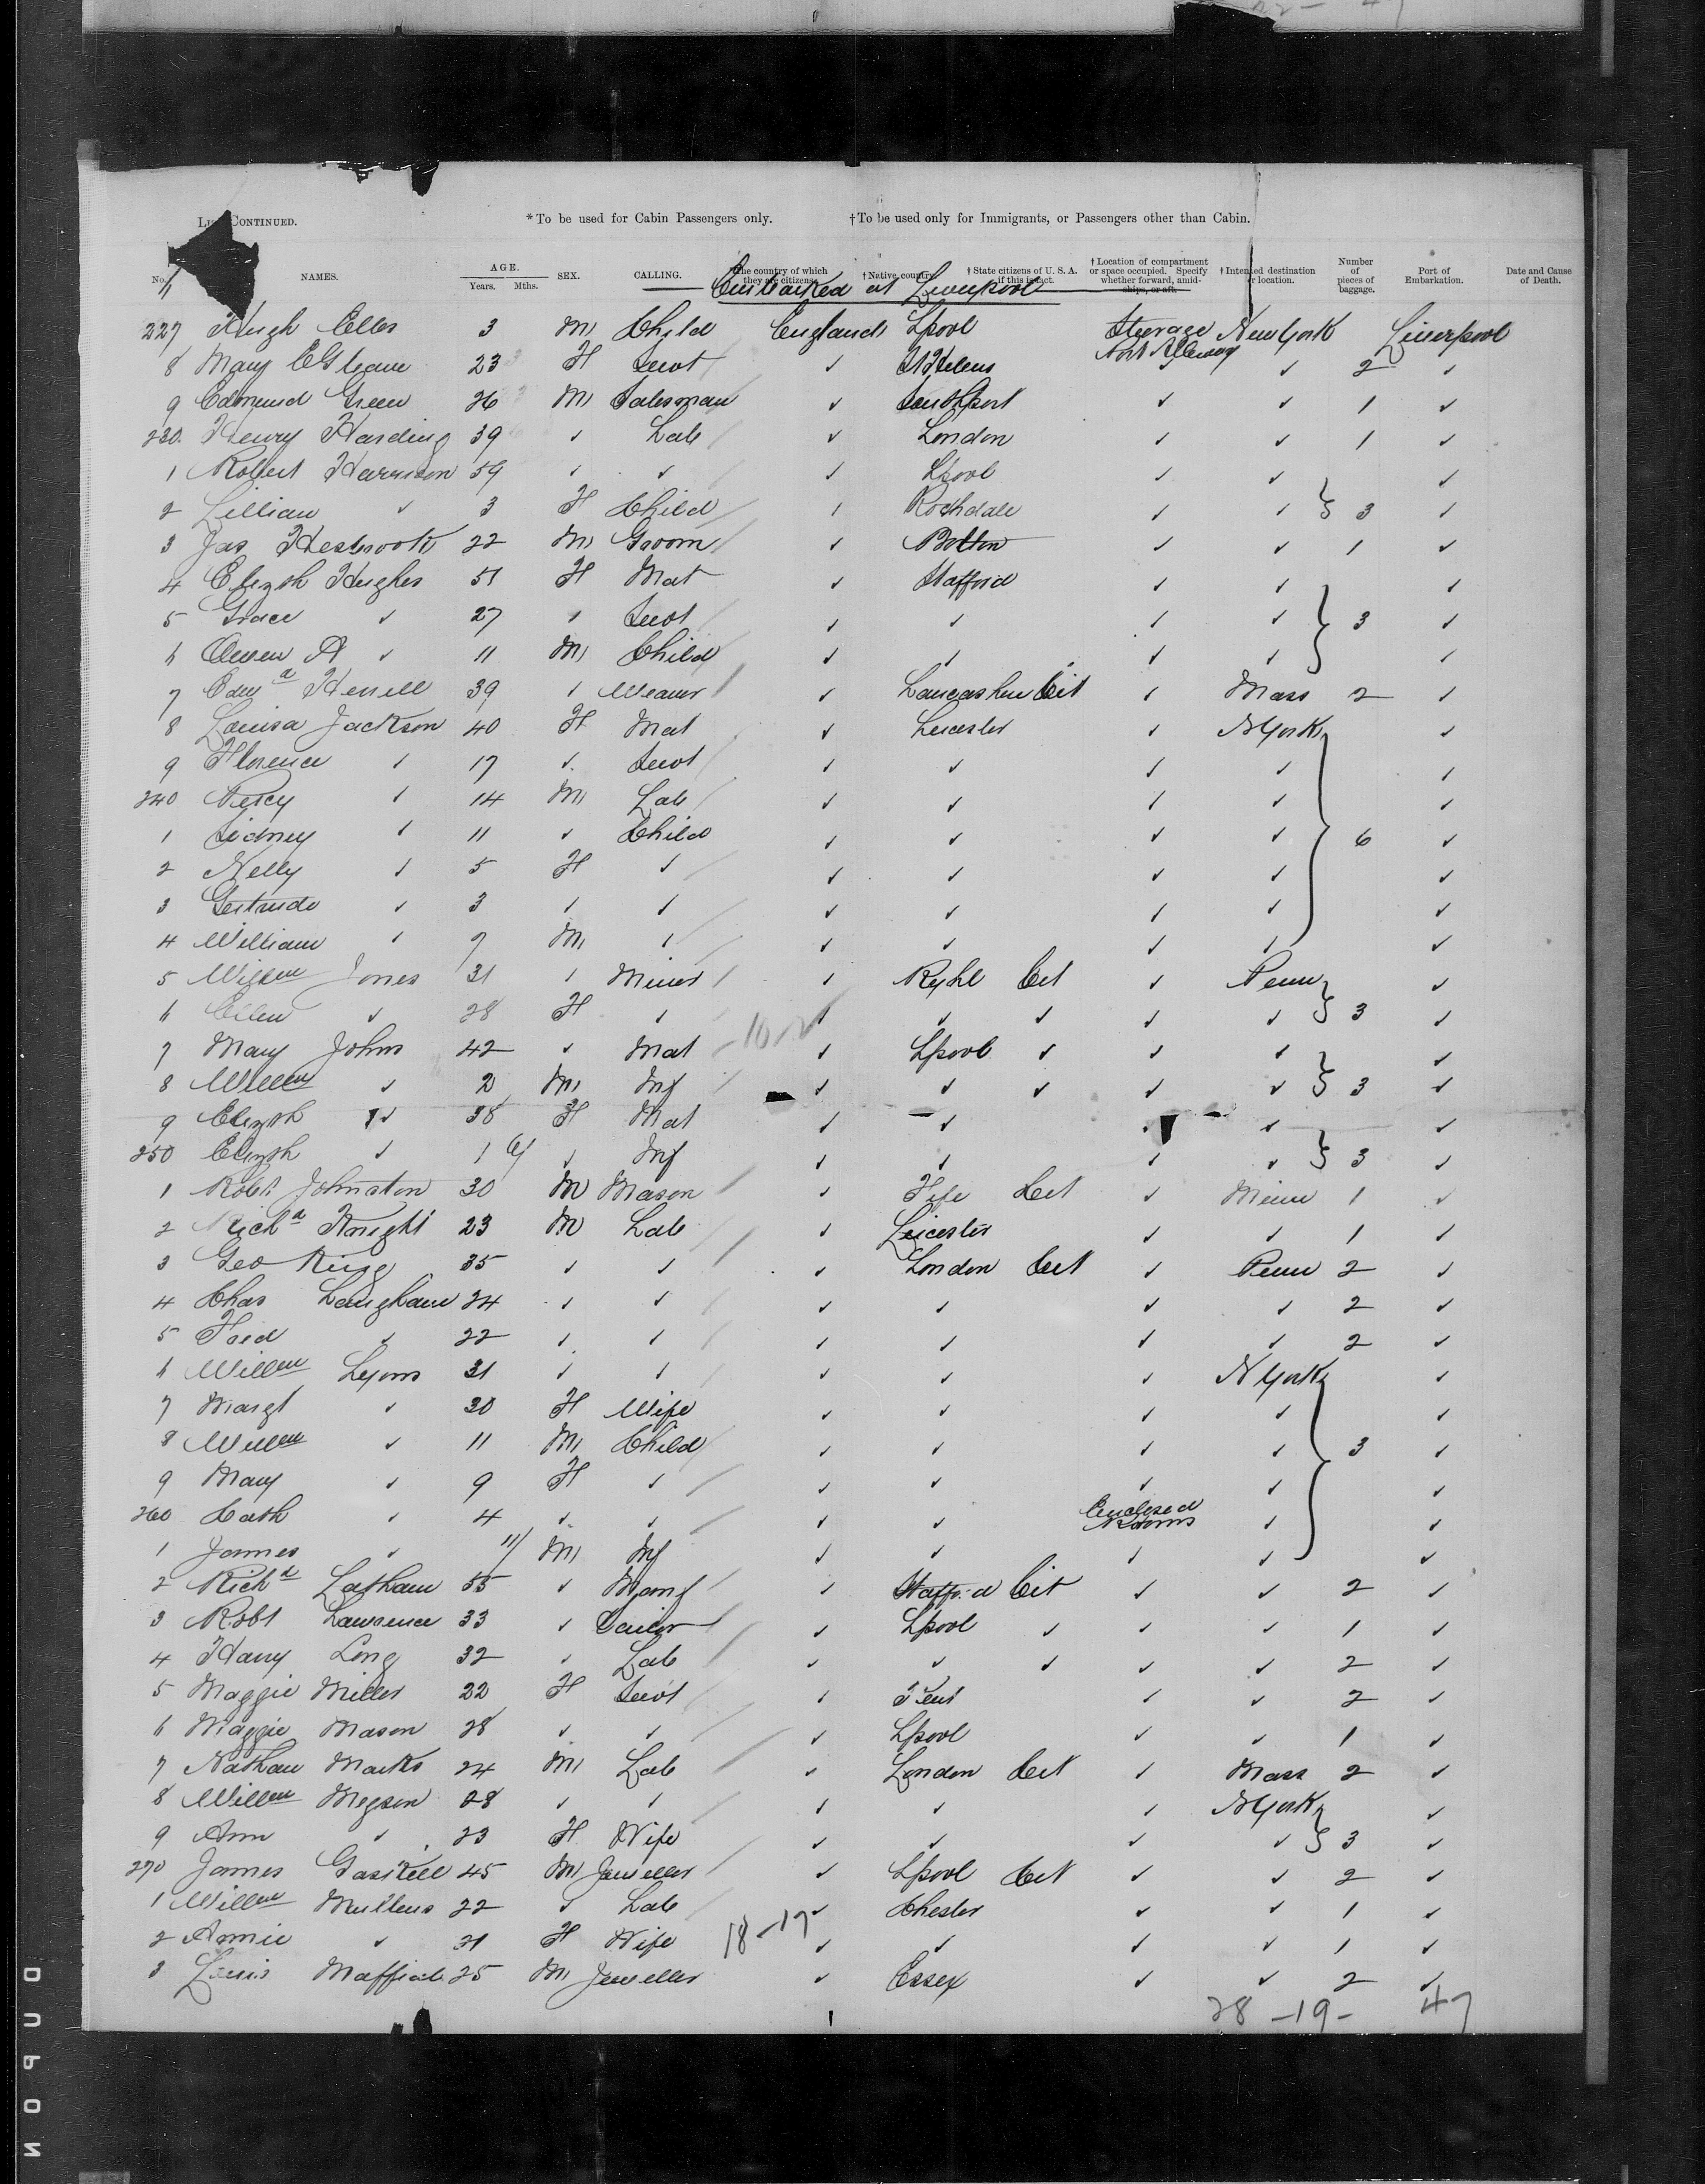 22- 47
List Continued. *To be used for Cabin Passengers only. †To be used only for Immigrants, or Passengers other than Cabin.
No. NAMES. AGE. Years. Mths. SEX. CALLING. The country of which they are citizens. †Native country. †State citizens of U. S. A. if this is fact. †Location of compartment or space occupied. Specify whether forward, amidships, or aft. †Intended destination or location. Number of pieces of baggage. Port of Embarkation. Date and Cause of Death.
Embarked at Liverpool
227 Hugh Elles 3 M Child England Lpool Steerage New York Liverpool
8 Mary 23 F Servt ✓ St Helens ✓ ✓ 2 ✓
9 Edmund Green 26 M Salesman ✓ Southport ✓ ✓ 1 ✓
230 Henry Harding 39 ✓ Lab ✓ London ✓ ✓ 1 ✓
1 Robert Harrison 59 ✓ ✓ ✓ Lpool ✓ ✓ ✓
2 Lillian ✓ 3 F Child ✓ Rochdale ✓ ✓ 3 ✓
3 Jas 22 M Groom ✓ Bolton ✓ ✓ 1 ✓
4 Elizth Hughes 51 F Mat ✓ Stafford ✓ ✓ ✓
5 Grace ✓ 27 ✓ Servt ✓ ✓ ✓ ✓ 3 ✓
6 Owen A ✓ 11 M Child ✓ ✓ ✓ ✓ ✓
7 Edwd 39 ✓ Weaver ✓ Lancashire Cit ✓ Mass 2 ✓
8 Louisa Jackson 40 F Mat ✓ Leicester ✓ N York ✓
9 Florence ✓ 17 ✓ Servt ✓ ✓ ✓ ✓ ✓
240 Percy ✓ 14 M Lab ✓ ✓ ✓ ✓ ✓
1 Sidney ✓ 11 ✓ Child ✓ ✓ ✓ ✓ 6 ✓
2 Nelly ✓ 5 F ✓ ✓ ✓ ✓ ✓ ✓
3 Gertrude ✓ 3 ✓ ✓ ✓ ✓ ✓ ✓ ✓
4 William ✓ 9 M ✓ ✓ ✓ ✓ ✓ ✓
5 Willm Jones 31 ✓ Miner ✓ Ryhl Cit ✓ Penn ✓
6 Ellen ✓ 28 F ✓ ✓ ✓ ✓ ✓ ✓ 3 ✓
7 Mary Johns 42 ✓ Mat ✓ Lpool ✓ ✓ ✓ ✓
8 Willm ✓ 2 M Inf ✓ ✓ ✓ ✓ ✓ 3 ✓
9 Elizth ✓ 38 F Mat ✓ ✓ ✓ ✓ ✓
250 Elizth ✓ 1 ✓ Inf ✓ ✓ ✓ ✓ 3 ✓
1 Robt Johnston 30 M Mason ✓ Fife Cit ✓ Minn 1 ✓
2 Richd Knight 23 M Lab ✓ Leicester ✓ ✓ 1 ✓
3 Geo King 35 ✓ ✓ ✓ London Cit ✓ Penn 2 ✓
4 Chas Langham 24 ✓ ✓ ✓ ✓ ✓ ✓ 2 ✓
5 Fred ✓ 22 ✓ ✓ ✓ ✓ ✓ ✓ 2 ✓
6 Willm Lyons 31 ✓ ✓ ✓ ✓ ✓ N York ✓
7 Margt ✓ 30 F Wife ✓ ✓ ✓ ✓ ✓
8 Willm ✓ 11 M Child ✓ ✓ ✓ ✓ 3 ✓
9 Mary ✓ 9 F ✓ ✓ ✓ ✓ ✓ ✓
260 Cath ✓ 4 ✓ ✓ ✓ ✓ Enclosed Rooms ✓ ✓
1 James ✓ 11/ M Inf ✓ ✓ ✓ ✓ ✓
2 Richd Latham 55 ✓ ✓ Stafford Cit ✓ ✓ 2 ✓
3 Robt Lawrence 33 ✓ ✓ Lpool ✓ ✓ ✓ 1 ✓
4 Harry Long 32 ✓ Lab ✓ ✓ ✓ ✓ ✓ 2 ✓
5 Maggie Miller 22 F Servt ✓ ✓ ✓ 2 ✓
6 Maggie Mason 28 ✓ ✓ ✓ Lpool ✓ ✓ 1 ✓
7 Nathan Marks 24 M Lab ✓ London Cit ✓ Mass 2 ✓
8 Willm Megson 28 ✓ ✓ ✓ ✓ ✓ N York ✓
9 Ann ✓ 23 F Wife ✓ ✓ ✓ ✓ 3 ✓
270 James Gaskell 45 M Jeweller ✓ Lpool Cit ✓ ✓ 2 ✓
1 Willm Mullens 22 ✓ Lab ✓ Chester ✓ ✓ 1 ✓
2 Annie ✓ 21 F Wife 18-17 ✓ ✓ ✓ ✓ 1 ✓
3 Louis 25 M Jeweller ✓ Essex ✓ ✓ 2 ✓
28 -19- 47
DUPON